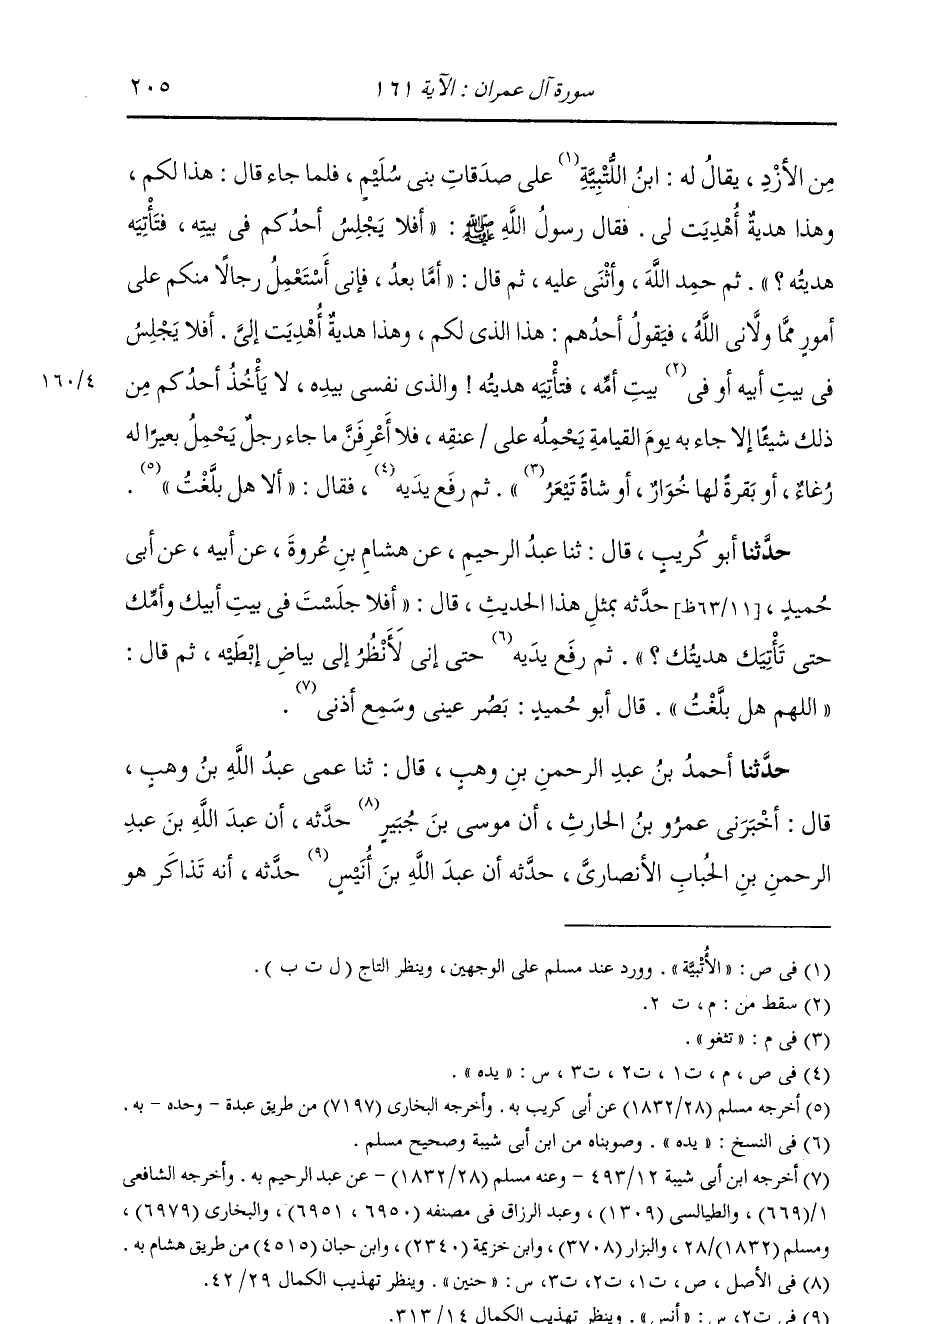 سورة آل عمران : الآية ١٦١
٢٠٥
مِن الأزْدِ ، يقالُ له : ابنُ اللُّتْبِيَّةِ(١) على صدَقاتِ بنى سُلَيْمٍ ، فلما جاء قال : هذا لكم ،
وهذا هديةٌ أُهْدِيَت لى . فقال رسولُ اللَّهِ ﷺ : « أفلا يَجْلِسُ أحدُكم فى بيتِه ، فتَأْتِيَه
هديتُه ؟ » . ثم حمِد اللَّهَ ، وأثْنَى عليه ، ثم قال : « أمَّا بعدُ ، فإنى أَسْتَعْمِلُ رجالًا منكم على
أمورٍ ممَّا ولَّانى اللَّهُ ، فيَقولُ أحدُهم : هذا الذى لكم ، وهذا هديةٌ أُهْدِيَت إلىَّ . أفلا يَجْلِسُ
فى بيتِ أبيه أو فى(٢) بيتِ أمِّه ، فتأْتِيَه هديتُه ! والذى نفسى بيدِه ، لا يَأْخُذُ أحدُكم مِن
١٦٠/٤
ذلك شيئًا إلا جاء به يومَ القيامةِ يَحْمِلُه على / عنقِه ، فلا أَعْرِفَنَّ ما جاء رجلٌ يَحْمِلُ بعيرًا له
رُغاءٌ ، أو بَقرةً لها خُوَارٌ ، أو شاةً تَيْعَرُ(٣) » . ثم رفَع يدَيه(٤) ، فقال : « ألا هل بلَّغْتُ »(٥) .
حدَّثنا أبو كُريبٍ ، قال : ثنا عبدُ الرحيمِ ، عن هشامِ بنِ عُروةَ ، عن أبيه ، عن أبى
حُميدٍ ، [٦٣/١١ظ] حدَّثه بمثلِ هذا الحديثِ ، قال : « أفلا جلَسْتَ فى بيتِ أبيك وأمِّك
حتى تَأْتِيَك هديتُك ؟ » . ثم رفَع يدَيه(٦) حتى إنى لَأَنْظُرُ إلى بياضِ إبْطَيْه ، ثم قال :
« اللهم هل بلَّغْتُ » . قال أبو حُميدٍ : بَصُر عينى وسَمِع أذنى(٧) .
حدَّثنا أحمدُ بنُ عبدِ الرحمنِ بنِ وهبٍ ، قال : ثنا عمى عبدُ اللَّهِ بنُ وهبٍ ،
قال : أخْبَرَنى عمرُو بنُ الحارثِ ، أن موسى بنَ جُبَيرٍ(٨) حدَّثه ، أن عبدَ اللَّهِ بنَ عبدِ
الرحمنِ بنِ الحُبابِ الأنصارىَّ ، حدَّثه أن عبدَ اللَّهِ بنَ أُنَيْسٍ(٩) حدَّثه ، أنه تَذاكَر هو
(١) فى ص : « الأُتْبِيَّة » . وورد عند مسلم على الوجهين ، وينظر التاج ( ل ت ب ) .
(٢) سقط من : م ، ت ٢.
(٣) فى م : « تثغو » .
(٤) فى ص ، م ، ت١ ، ت٢ ، ت٣ ، س : « يده » .
(٥) أخرجه مسلم (١٨٣٢/٢٨) عن أبى كريب به . وأخرجه البخارى (٧١٩٧) من طريق عبدة - وحده - به .
(٦) فى النسخ : « يده » . وصوبناه من ابن أبى شيبة وصحيح مسلم .
(٧) أخرجه ابن أبى شيبة ٤٩٣/١٢ - وعنه مسلم (١٨٣٢/٢٨) - عن عبد الرحيم به . وأخرجه الشافعى
١/(٦٦٩) ، والطيالسى (١٣٠٩) ، وعبد الرزاق فى مصنفه (٦٩٥٠ ، ٦٩٥١) ، والبخارى (٦٩٧٩) ،
ومسلم (١٨٣٢)/٢٨ ، والبزار (٣٧٠٨) ، وابن خزيمة (٢٣٤٠) ، وابن حبان (٤٥١٥) من طريق هشام به .
(٨) فى الأصل ، ص ، ت١ ، ت٢ ، ت٣ ، س : « حنين » . وينظر تهذيب الكمال ٤٢/٢٩.
(٩) فى ت٢ ، س : « أنس » . وينظر تهذيب الكمال ٣١٣/١٤.